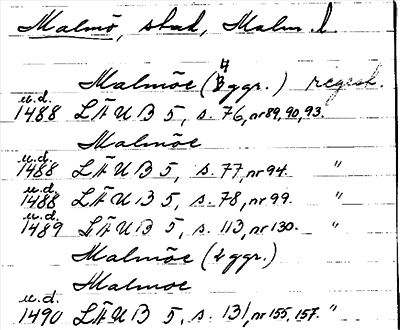 Malmö, stad, Malm. l.
Malmöe (4 ggr.) regest.
u.d.
1488 LÄUB 5, s. 76, nr 89, 90, 93.
Malmöe
u.d.
1488 LÄUB 5, s. 77, nr 94. "
u.d.
1488 LÄUB 5, s. 78, nr 99. "
u.d.
1489 LÄUB 5, s. 113, nr 130. "
Malmöe (2 ggr.)
Malmoe
u.d.
1490 LÄUB 5, s. 131, nr 155, 157. "